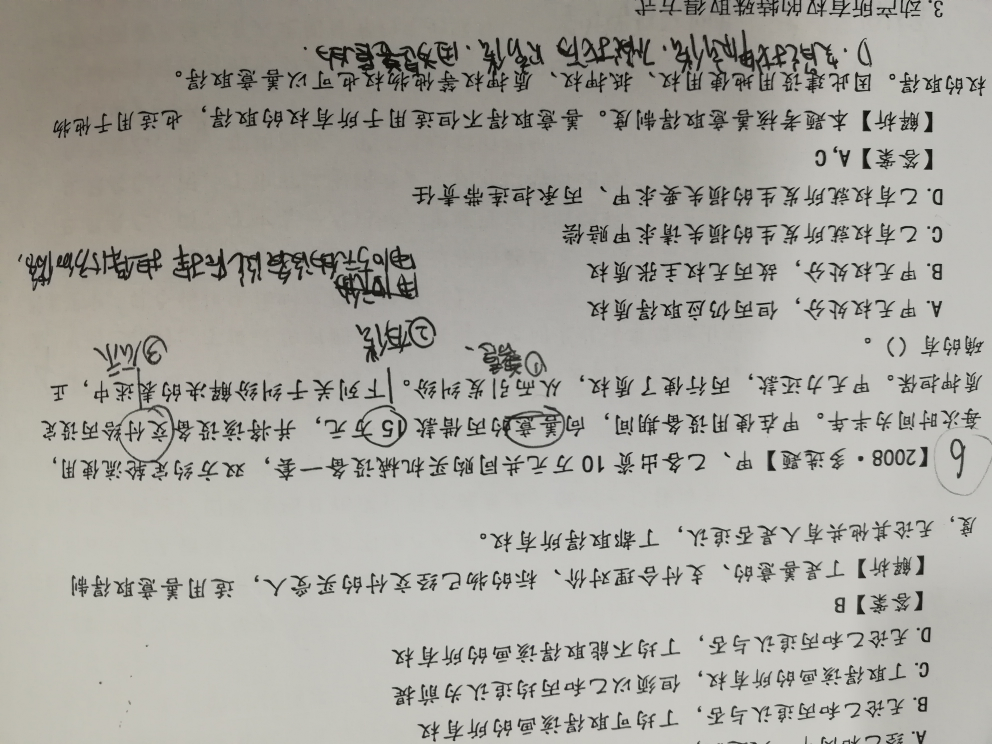 A. 经乙和丙
B. 无论乙和丙追认与否，丁均可取得该画的所有权
C. 丁取得该画的所有权，但须以乙和丙均追认为前提
D. 无论乙和丙追认与否，丁均不能取得该画的所有权
【答案】B
【解析】丁是善意的、支付合理对价、标的物已经交付的买受人，适用善意取得制
度，无论其他共有人是否追认，丁都取得所有权。
【2008·多选题】甲、乙各出资 10 万元共同购买机械设备一套，双方约定轮流使用，
每次时间为半年。甲在使用设备期间，向善意的丙借款 15 万元，并将该设备交付给丙设定
质押担保。甲无力还款，丙行使了质权，从而引发纠纷。下列关于纠纷解决的表述中，正
确的有（）。
①善意、
②有偿
③公示
A. 甲无权处分，但丙仍应取得质权
B. 甲无权处分，故丙无权主张质权
C. 乙有权就所发生的损失请求甲赔偿
D. 乙有权就所发生的损失要求甲、丙承担连带责任
【答案】A,C
【解析】本题考核善意取得制度。善意取得不但适用于所有权的取得，也适用于他物
权的取得。因此建设用地使用权、抵押权、质押权等他物权也可以善意取得。
3. 动产所有权的特殊取得方式